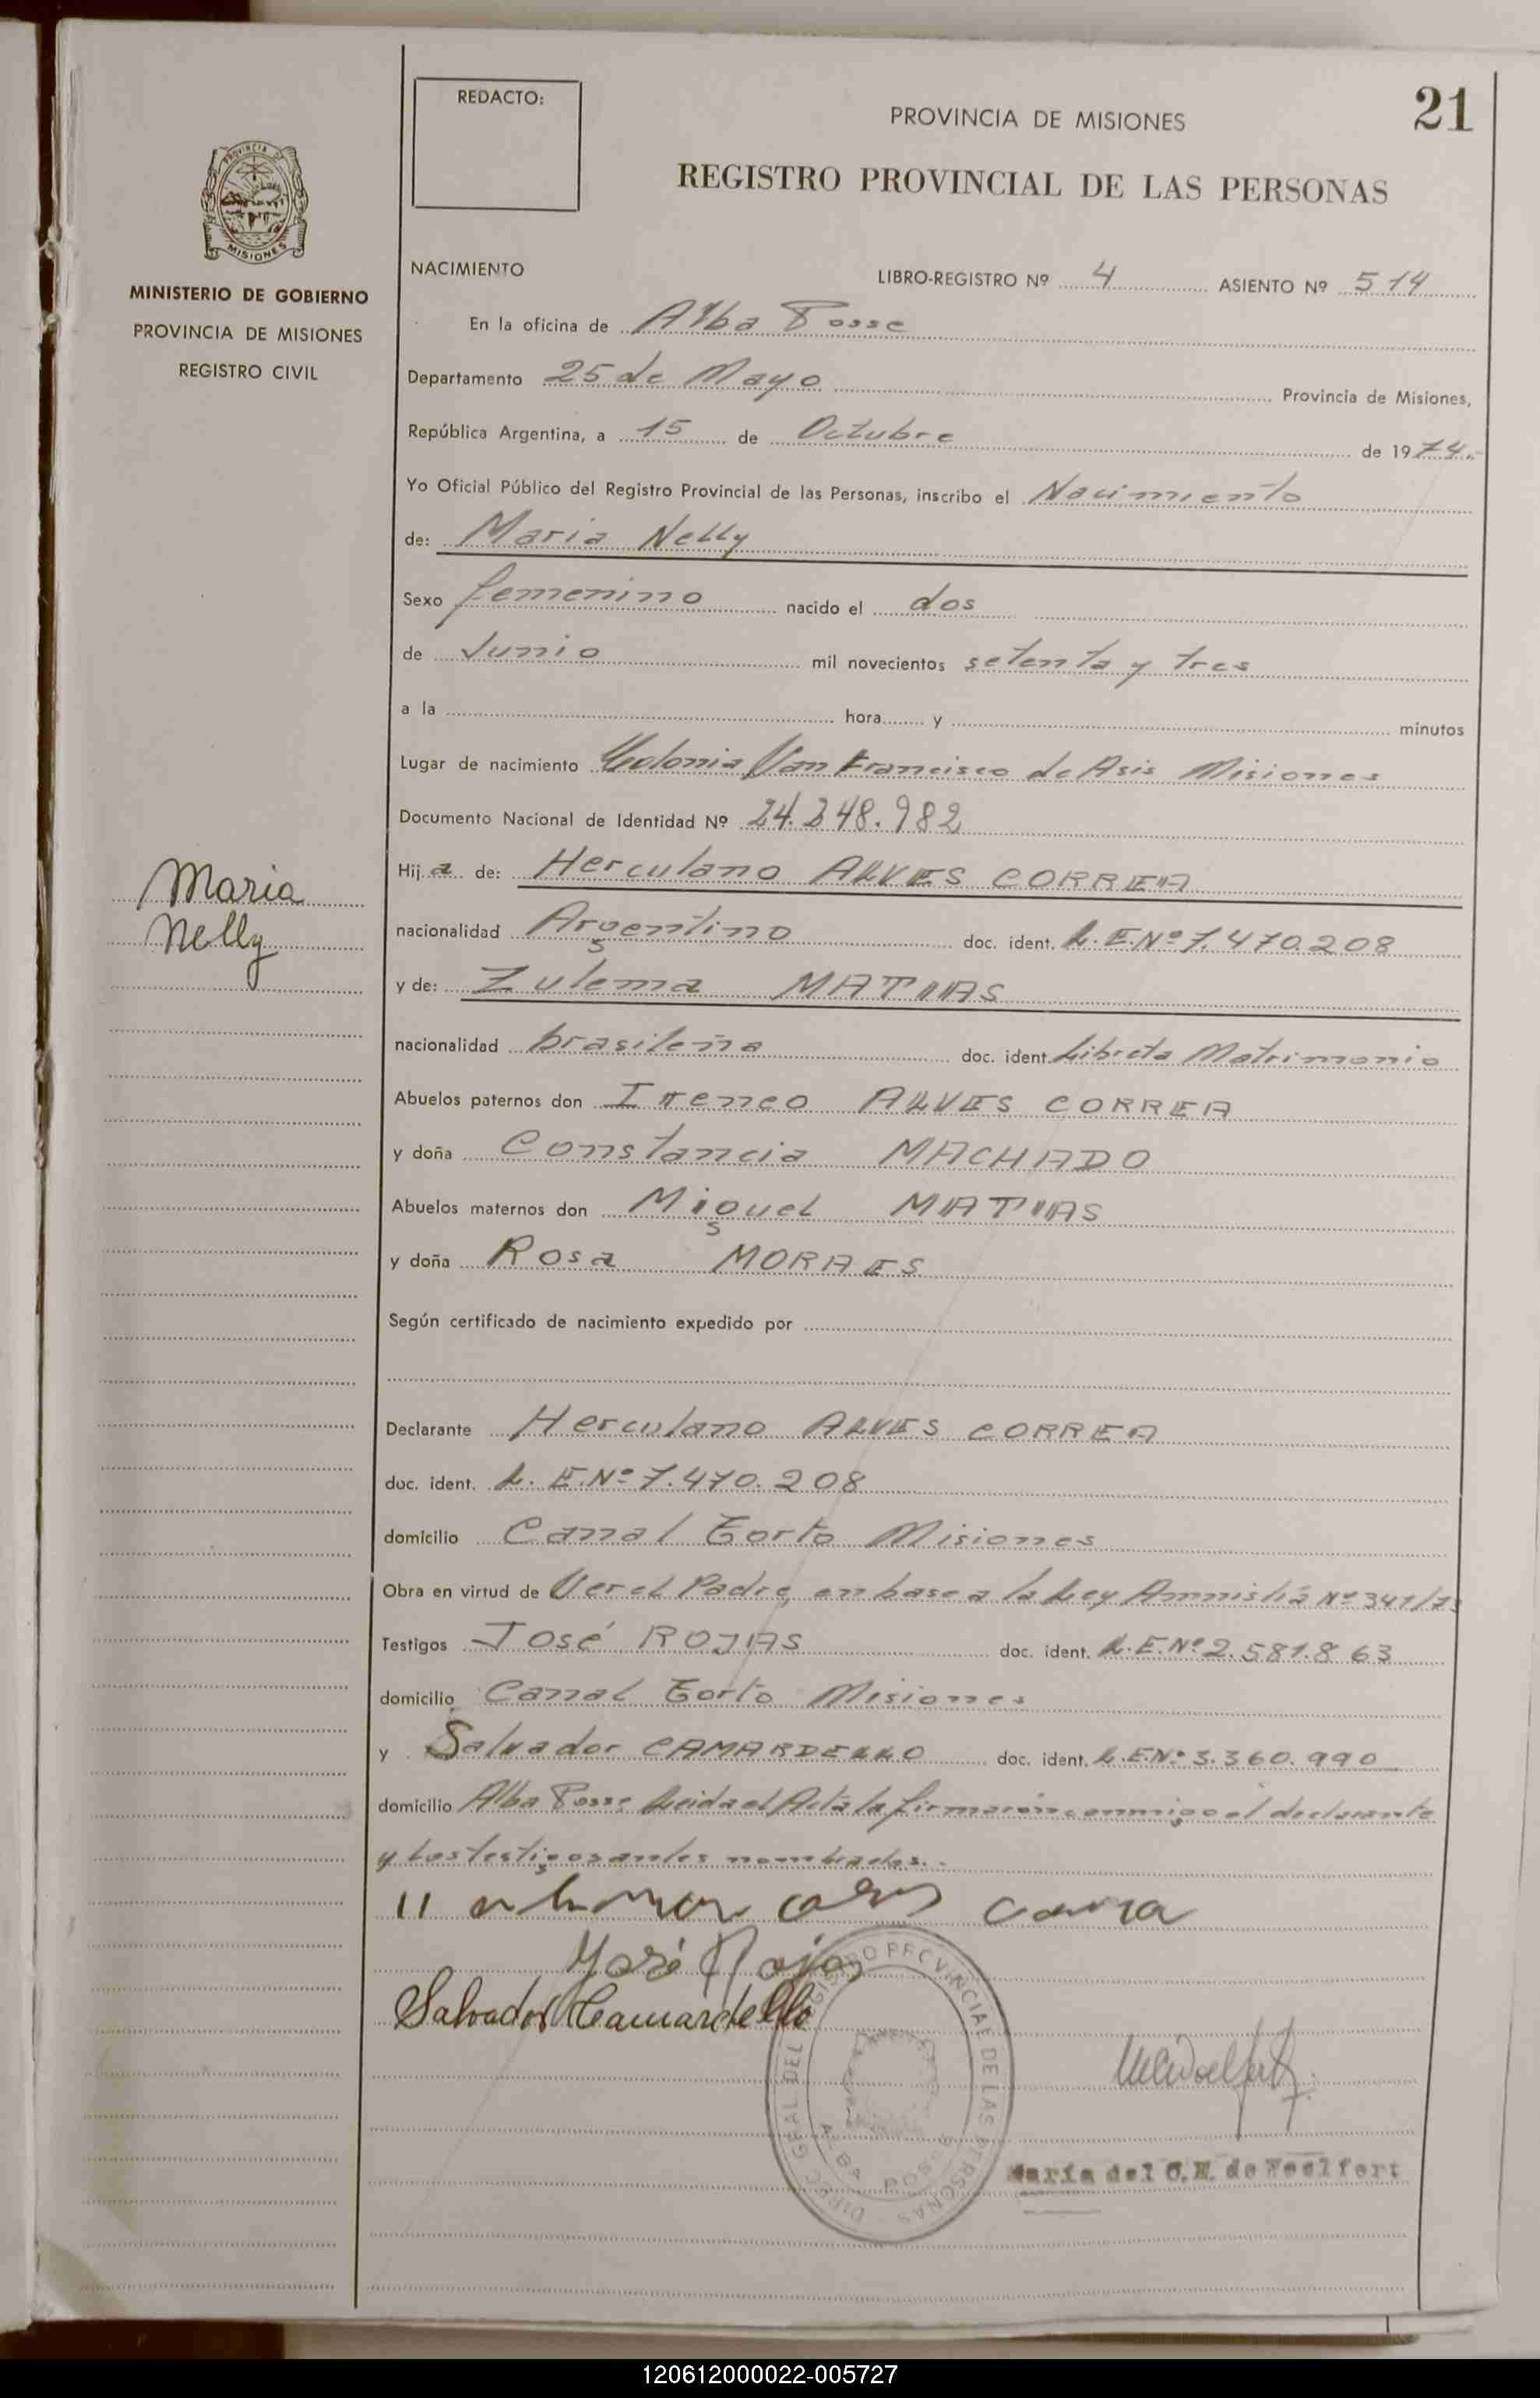 REDACTO:
PROVINCIA DE MISIONES
21
REGISTRO PROVINCIAL DE LAS PERSONAS
PROVINCIA DE
MISIONES
MINISTERIO DE GOBIERNO
PROVINCIA DE MISIONES
REGISTRO CIVIL
NACIMIENTO LIBRO-REGISTRO Nº 4 ASIENTO Nº 514
En la oficina de Alba Posse
Departamento 25 de Mayo Provincia de Misiones,
República Argentina, a 15 de Octubre de 1974.-
Yo Oficial Público del Registro Provincial de las Personas, inscribo el Nacimiento
de: Maria Nelly
Sexo femenino nacido el dos
de Junio mil novecientos setenta y tres
a la hora y minutos
Lugar de nacimiento Colonia San Francisco de Asis Misiones
Documento Nacional de Identidad Nº 24.348.982
Maria
Nelly
Hija de: Herculano ALVES CORREA
nacionalidad Argentino doc. ident. L.E.Nº 7.470.208
y de: Zulema MATIAS
nacionalidad brasileña doc. ident. Libreta Matrimonio
Abuelos paternos don Ireneo ALVES CORREA
y doña Constancia MACHADO
Abuelos maternos don Miguel MATIAS
y doña Rosa MORAES
Según certificado de nacimiento expedido por
Declarante Herculano ALVES CORREA
doc. ident. L.E.Nº 7.470.208
domicilio Canal Torto Misiones
Obra en virtud de Ser el Padre, en base a la Ley Amnistia Nº 341/73
Testigos José ROJAS doc. ident. L.E.Nº 2.581.863
domicilio Canal Torto Misiones
y Salvador CAMARDELLO doc. ident. L.E.Nº 3.360.990
domicilio Alba Posse Leida el Acta la firmaron conmigo el declarante
y los testigos antes nombrados.-
José Rojas
Salvador Camardello
DIREC. GRAL. DEL REGISTRO PROVINCIAL DE LAS PERSONAS
ALBA POSSE
María del C.H. de Woelfert
120612000022-005727